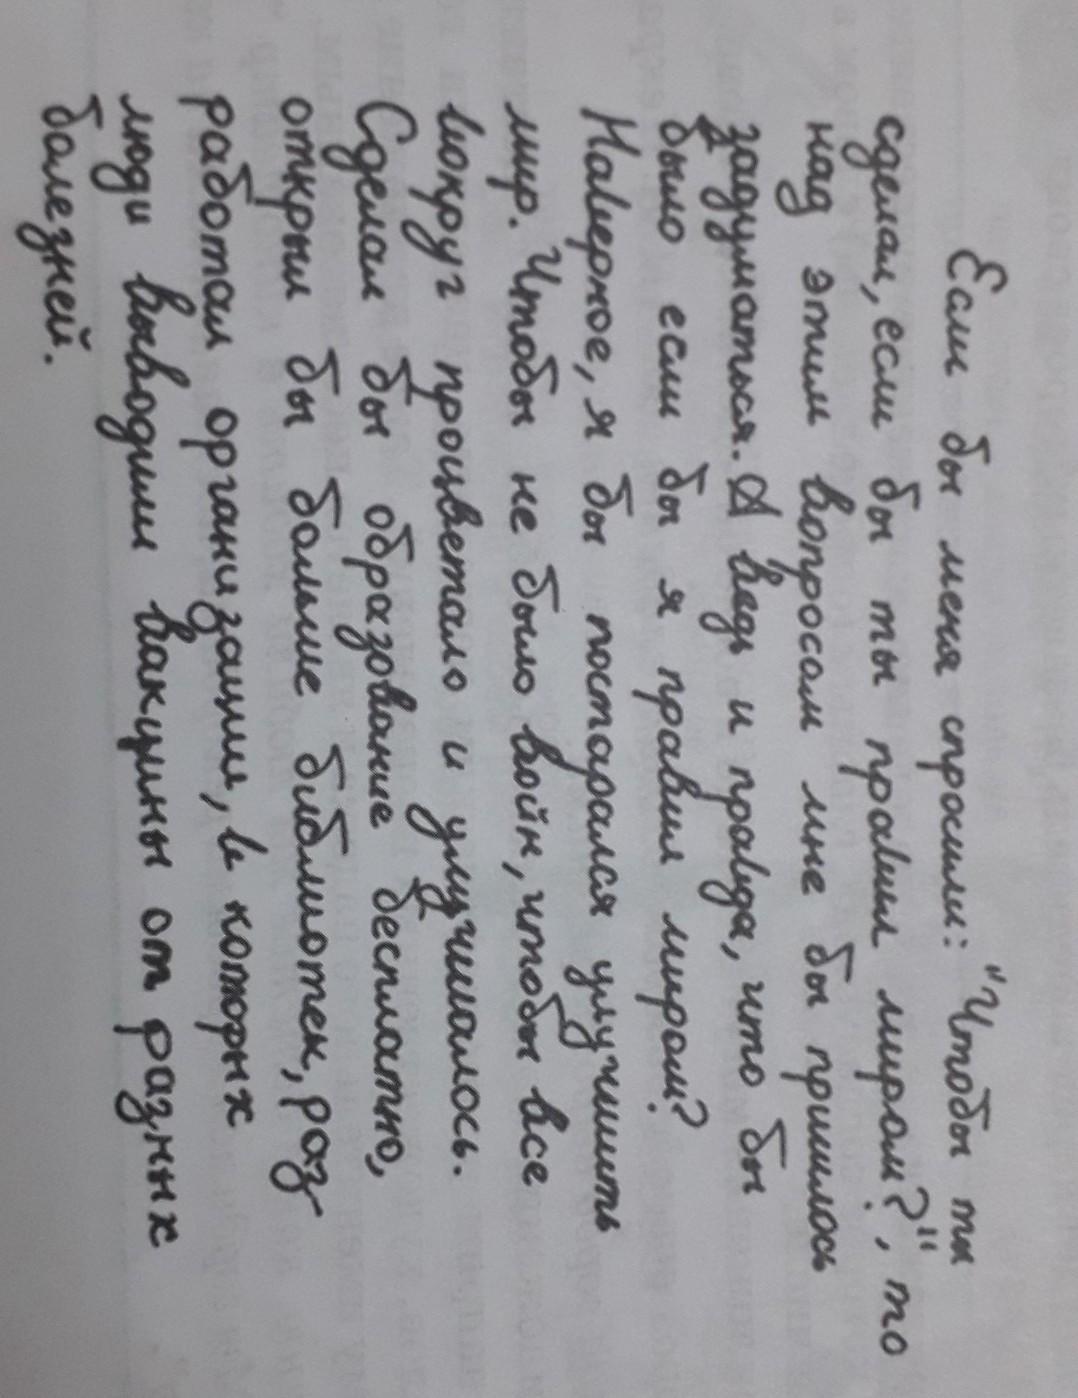 Если бы меня спросили: "Чтобы ты
сделал, если бы ты правил миром?", то
над этим вопросом мне бы пришлось
задуматься. А ведь и правда, что бы
было если бы я правил миром?
Наверное, я бы постарался улучшить
мир. Чтобы не было войн, чтобы все
вокруг процветало и улучшалось.
Сделал бы образование бесплатно,
открыл бы больше библиотек, раз
работал организации, в которых
люди выводили вакцины от разных
болезней.